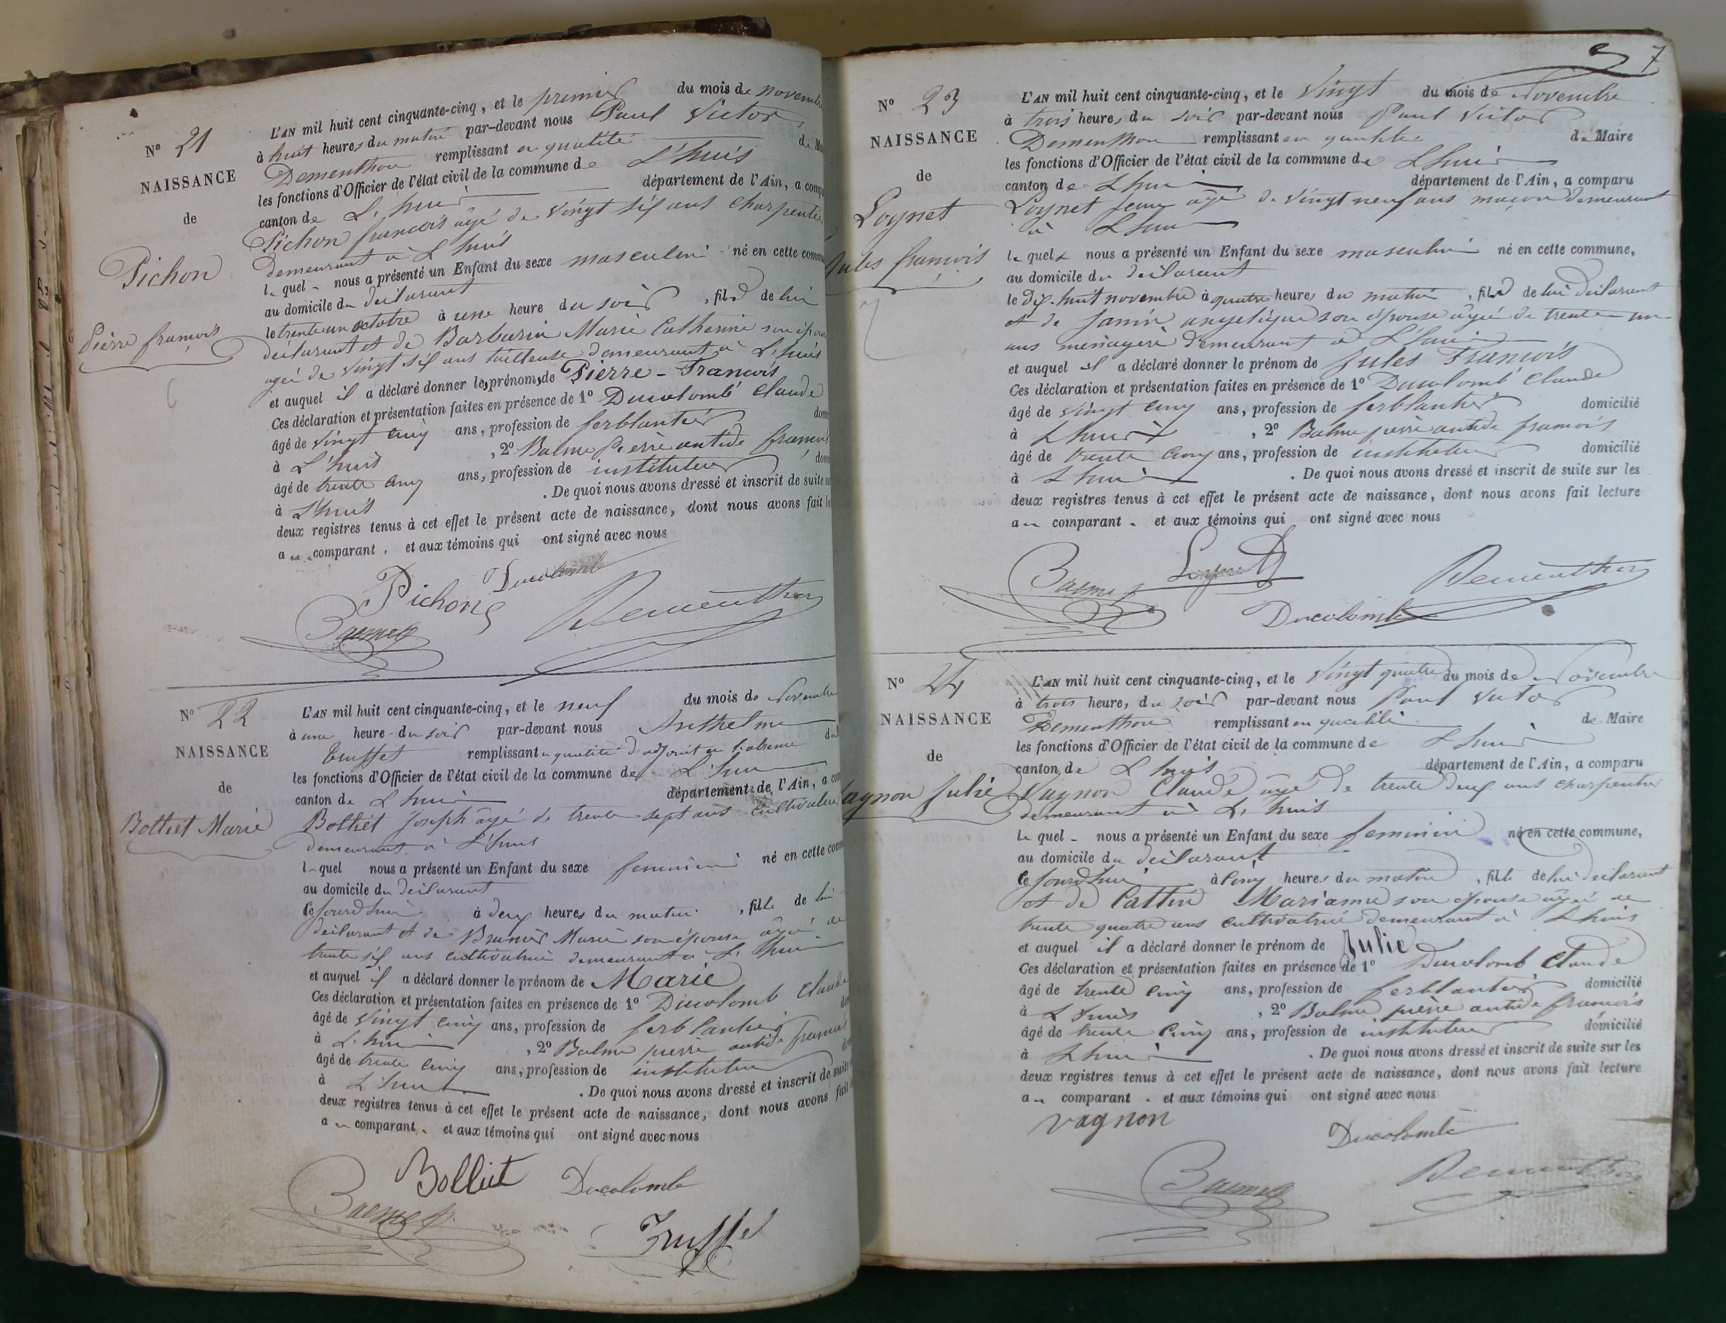 N° 21
NAISSANCE
de
Pichon
Pierre françois
L'AN mil huit cent cinquante-cinq, et le premier du mois de novembre
à huit heures du matin par-devant nous Paul Victor
Dementhon remplissant en qualité de
les fonctions d'Officier de l'état civil de la commune de L'huis
canton de L'huis département de l'Ain, a
Pichon françois âgé de vingt six ans charpentier
demeurant à L'huis
lequel nous a présenté un Enfant du sexe masculin né en cette
au domicile du déclarant
le trente un octobre à une heure du soir, fils de lui
déclarant et de Barbarin Marie Catherine son
agée de vingt six ans tailleuse demeurant à L'huis
et auquel il a déclaré donner les prénoms de Pierre-François
Ces déclaration et présentation faites en présence de 1° Ducolombé Claude
âgé de vingt cinq ans, profession de ferblantier
à L'huis, 2° Balme Pierre antide
âgé de trente cinq ans, profession de instituteur
à Lhuis. De quoi nous avons dressé et inscrit de suite
deux registres tenus à cet effet le présent acte de naissance, dont nous avons fait
au comparant. et aux témoins qui ont signé avec nous
Pichon Ducolombé
Balme Dementhon
N° 22
NAISSANCE
de
Bolliet Marie
L'AN mil huit cent cinquante-cinq, et le neuf du mois de Novembre
à une heure du soir par-devant nous Anthelme
Truffet remplissant en qualité d'adjoint en l'absence
les fonctions d'Officier de l'état civil de la commune de L'huis
canton de L'huis département de l'Ain, a
Bolliet Joseph âgé de trente sept ans cultivateur
demeurant à L'huis
lequel nous a présenté un Enfant du sexe féminin né en cette
au domicile du déclarant
Cejourd'hui à deux heures du matin, fille de lui
déclarant et de Marie son épouse âgée de
trente six ans cultivatrice demeurant à L'huis
et auquel il a déclaré donner le prénom de Marie
Ces déclaration et présentation faites en présence de 1° Ducolomb Claude
âgé de vingt cinq ans, profession de ferblantier
à L'huis, 2° Balme pierre antide
âgé de trente cinq ans, profession de instituteur
à L'huis. De quoi nous avons dressé et inscrit de suite
deux registres tenus à cet effet le présent acte de naissance, dont nous avons fait
au comparant. et aux témoins qui ont signé avec nous
Bolliet Ducolombé
Balme Truffet
7
N° 23
NAISSANCE
de
Loynet
Jules françois
L'AN mil huit cent cinquante-cinq, et le Vingt du mois de Novembre
à trois heures du soir par-devant nous Paul Victor
Dementhon remplissant en qualité de Maire
les fonctions d'Officier de l'état civil de la commune de Lhuis
canton de Lhuis département de l'Ain, a comparu
Loynet Jean âgé de vingt neuf ans maçon demeurant
à Lhuis
lequel nous a présenté un Enfant du sexe masculin né en cette commune,
au domicile du déclarant
le dix huit novembre à quatre heures du matin, fils de lui déclarant
et de Janin angélique son épouse agée de trente un
ans ménagère demeurant à L'huis
et auquel il a déclaré donner le prénom de Jules François
Ces déclaration et présentation faites en présence de 1° Ducolombé Claude
âgé de vingt cinq ans, profession de ferblantier domicilié
à Lhuis, 2° Balme pierre antide françois
âgé de trente cinq ans, profession de instituteur domicilié
à Lhuis. De quoi nous avons dressé et inscrit de suite sur les
deux registres tenus à cet effet le présent acte de naissance, dont nous avons fait lecture
au comparant. et aux témoins qui ont signé avec nous
Balme Loynet Dementhon
Ducolombé
N° 24
NAISSANCE
de
Vagnon Julie
L'AN mil huit cent cinquante-cinq, et le Vingt quatre du mois de Novembre
à trois heures, du soir par-devant nous Paul Victor
Dementhon remplissant en qualité de Maire
les fonctions d'Officier de l'état civil de la commune de Lhuis
canton de L'huis département de l'Ain, a comparu
Vagnon Claude âgé de trente deux ans charpentier
demeurant à L'huis
lequel nous a présenté un Enfant du sexe féminin né en cette commune,
au domicile du déclarant
Cejourd'hui à cinq heures du matin, fille de lui déclarant
et de Cattin Marianne son épouse âgée de
trente quatre ans cultivatrice demeurant à Lhuis
et auquel il a déclaré donner le prénom de Julie
Ces déclaration et présentation faites en présence de 1° Ducolomb Claude
âgé de trente cinq ans, profession de ferblantier domicilié
à Lhuis, 2° Balme pierre antide françois
âgé de trente cinq ans, profession de instituteur domicilié
à Lhuis. De quoi nous avons dressé et inscrit de suite sur les
deux registres tenus à cet effet le présent acte de naissance, dont nous avons fait lecture
au comparant. et aux témoins qui ont signé avec nous
vagnon Ducolombé
Balme Dementhon